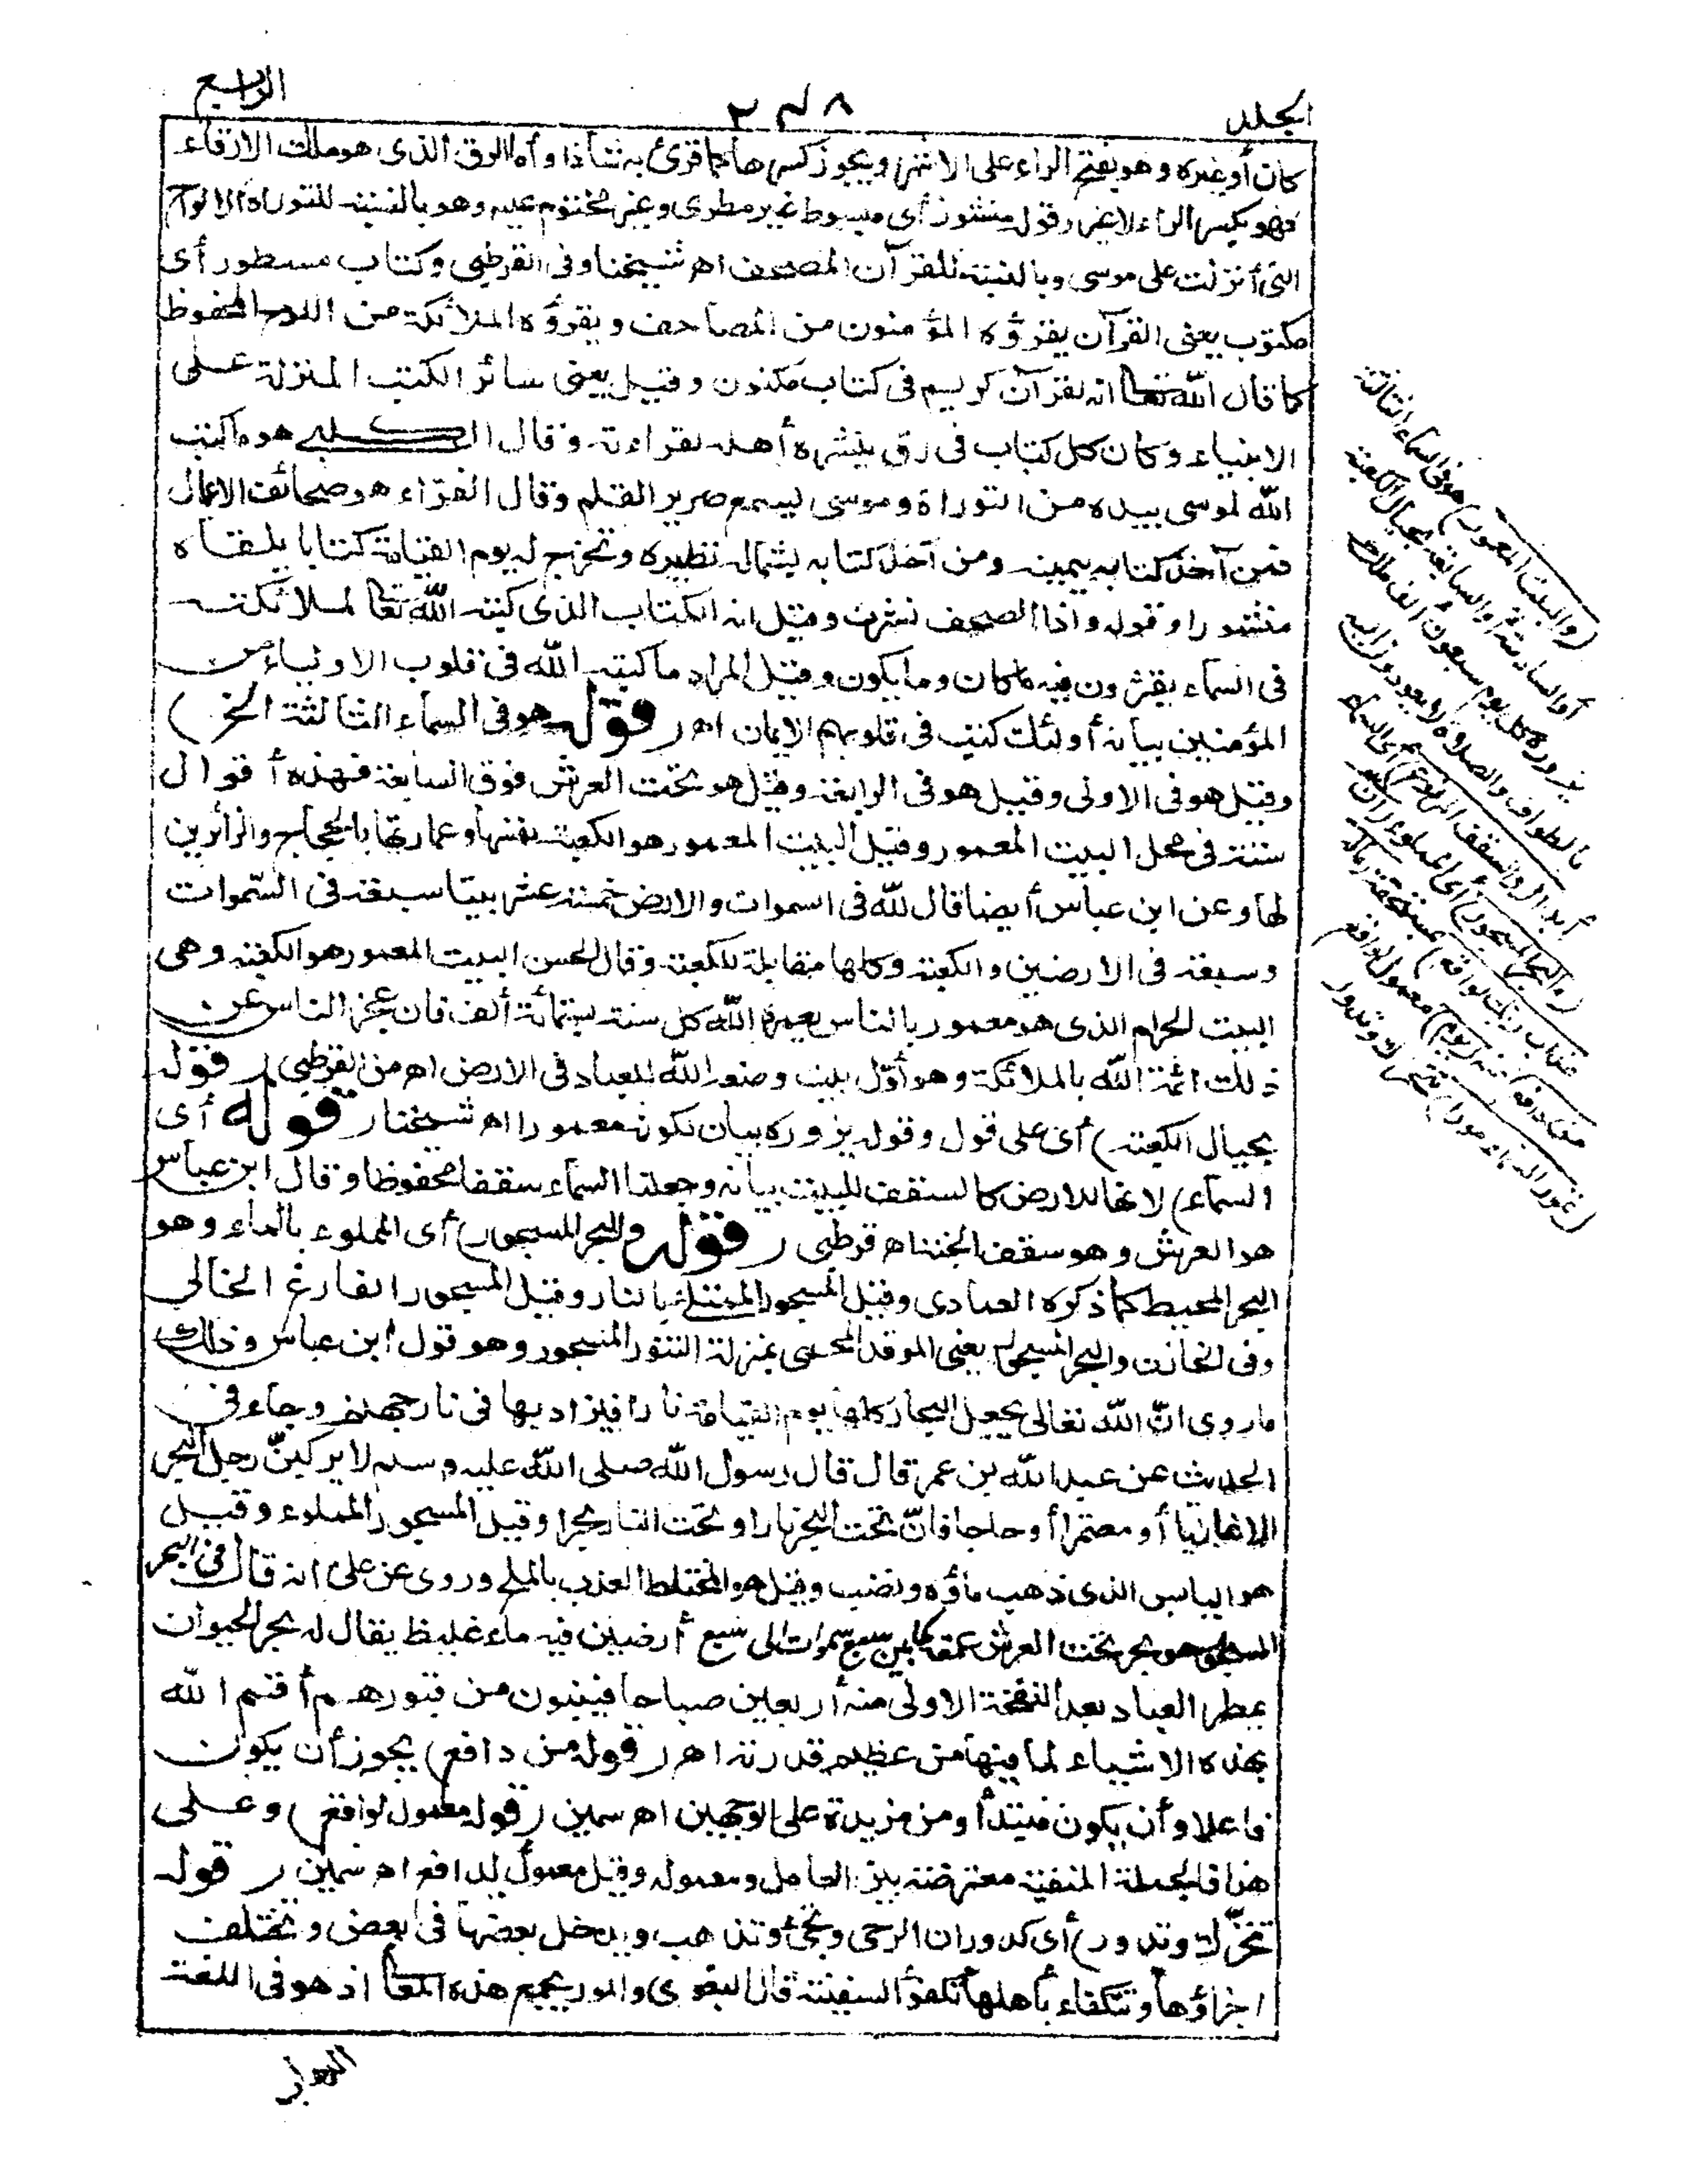 الجلد
٢٤٨
الرابع
كان أو غيره وهو بفتح الراء على الاشهر ويجوز كسرها كما قرئ به شاذا وأما الرق الذى هو ملك الارقاء
فهو بكسر الراء لا غير وقوله منشور أى مبسوط غير مطوى وغير مختوم عليه وهو بالنسبة للتوراة الالواح
التى أنزلت على موسى وبالنسبة للقرآن المصحف اهـ شيخنا وفى القرطبى وكتاب مسطور أى
مكتوب يعنى القرآن يقرؤه المؤمنون من المصاحف ويقرؤه الملائكة من اللوح المحفوظ
كما قال الله تعا انه لقرآن كريم فى كتاب مكنون وقيل يعنى سائر الكتب المنزلة على
الانبياء وكان كل كتاب فى رق ينشره أهله لقراءته وقال الكلبى هو ما كتب
الله لموسى بيده من التوراة وموسى يسمع صرير القلم وقال الفرّاء هو صحائف الاعمال
فمن آخذ كتابه بيمينه ومن آخذ كتابه بشماله نظيره ونخرج له يوم القيامة كتابا يلقاه
منشورا وقوله واذا الصحف نشرت وقيل انه الكتاب الذى كتبه الله تعا لملائكته
فى السماء يقرؤن فيه ما كان وما يكون وقيل المراد ما كتبه الله فى قلوب الاولياء من
المؤمنين بيانه أولئك كتب فى قلوبهم الايمان اهـ (قوله هو فى السماء الثالثة الخ)
وقيل هو فى الاولى وقيل هو فى الرابعة وقيل هو تحت العرش فوق السابعة فهذه أقوال
ستة فى محل البيت المعمور وقيل البيت المعمور هو الكعبة نفسها وعمارتها بالحجاج والزائرين
لها وعن ابن عباس أيضا قال لله فى السموات والارض خمسة عشر بيتا سبعة فى السّموات
وسبعة فى الارضين والكعبة وكلها مقابلة للكعبة وقال الحسن البيت المعمور هو الكعبة وهى
البيت الحرام الذى هو معمور بالناس يعمره الله كل سنة بستمائة ألف فان عجز الناس عن
ذلك اتمه الله بالملائكة وهو أوّل بيت وضعه الله للعباد فى الارض اهـ من القرطبى (قوله
بحيال الكعبة) أى على قول وقوله يزوره بيان لكونه معمورا اهـ شيخنا (قوله أى
السماء) لانها للارض كالسقف للبيت بيانه وجعلنا السماء سقفا محفوظا وقال ابن عباس
هو العرش وهو سقف الجنة اهـ قرطبى (قوله والبحر المسجور) أى المملوء بالماء وهو
البحر المحيط كما ذكره العمادى وقيل المسجور الممتلئ بالنار وقيل المسجور الفارغ الخالى
وفى الخازن والبحر المسجور يعنى الموقد المحمى بمنزلة التنور المسجور وهو قول ابن عباس وذلك
ما روى انّ الله تعالى يجعل البحار كلها يوم القيامة نارا فيزاد بها فى نار جهنم وجاء فى
الحديث عن عبد الله بن عمر قال قال رسول الله صلى الله عليه وسلم لا يركبنّ رجل البحر
الا غازيا أو معتمرا أو حاجا فانّ تحت البحر نارا وتحت النار بحرا وقيل المسجور المملوء وقيل
هو اليابس الذى ذهب ماؤه ونضب وقيل هو المختلط العذب بالملح وروى عن على انه قال فى البحر
المسجور هو بحر تحت العرش عمقه كما بين سبع سموات الى سبع أرضين فيه ماء غليظ يقال له بحر الحيوان
يمطر العباد بعد النفخة الاولى منه أربعين صباحا فينبتون من قبورهم أقسم الله
بهذه الاشياء لما فيها من عظيم قدرته اهـ (قوله من دافع) يجوز أن يكون
فاعلا وأن يكون مبتدأ ومن مزيدة على الوجهين اهـ سمين (قوله معمول لواقع) وعلى
هذا فالجملة المنفية معترضة بين العامل ومعموله وقيل معمول لدافع اهـ سمين (قوله
تتحرّك وتدور) أى كدوران الرحى وتجئ وتذهب ويدخل بعضها فى بعض وتختلف
اجزاؤها وتتكفاء بأهلها تكفؤ السفينة قال البغوى والمور يجمع هذه المعا اذ هو فى اللغة
(والبيت المعمور) هو فى السماء الثالثة
أو السادسة أو السابعة بحيال الكعبة
يزوره كل يوم سبعون ألف ملك
بالطواف والصلاة لا يعودون اليه
أبدا (والسقف المرفوع) أى السماء
(والبحر المسجور) أى المملوء (ان
عذاب ربك لواقع) بمستحقه (ماله
من دافع) عنه (يوم) معمول لواقع
(تمور السماء مورا) تتحرك وتدور